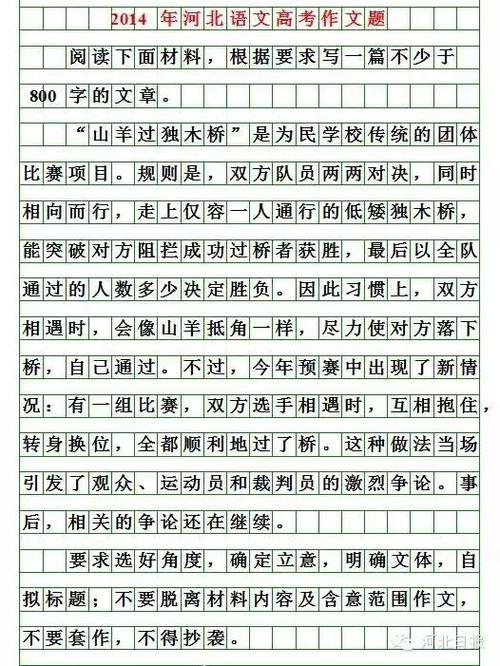 2014 年河北语文高考作文题
阅读下面材料，根据要求写一篇不少于
800 字的文章。
“山羊过独木桥”是为民学校传统的团体
比赛项目。规则是，双方队员两两对决，同时
相向而行，走上仅容一人通行的低矮独木桥，
能突破对方阻拦成功过桥者获胜，最后以全队
通过的人数多少决定胜负。因此习惯上，双方
相遇时，会像山羊抵角一样，尽力使对方落下
桥，自己通过。不过，今年预赛中出现了新情
况：有一组比赛，双方选手相遇时，互相抱住，
转身换位，全都顺利地过了桥。这种做法当场
引发了观众、运动员和裁判员的激烈争论。事
后，相关的争论还在继续。
要求选好角度，确定立意，明确文体，自
拟标题；不要脱离材料内容及含意范围作文，
不要套作，不得抄袭。
河北日报